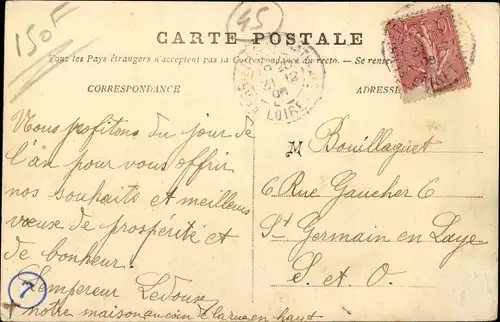 150F
45
CARTE POSTALE
Tous les Pays étrangers n'acceptent pas la Correspondance du recto. — Se rense
CORRESPONDANCE
ADRESSE
31 12
06
LOIRET
Nous profitons du jour de
l'an pour vous offrir
nos souhaits et meilleurs
vœux de prospérité et
de bonheur.
Lempereur Ledoux
+ notre maison au coin de la rue en haut
7
M Bouillaguet
6 Rue Gaucher 6
St Germain en Laye
S. et O.